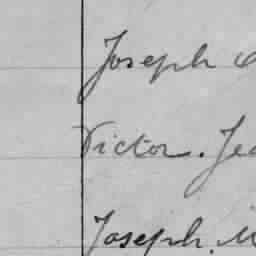 Joseph
Victor. Jea
Joseph. M